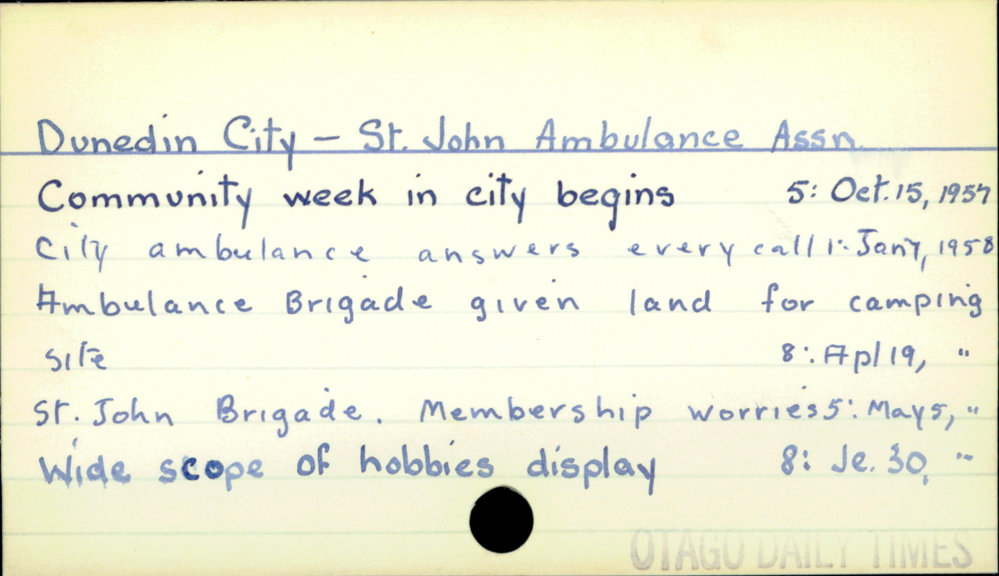 Dunedin City - St. John Ambulance Assn.
Community week in city begins 5: Oct. 15, 1957
City ambulance answers every call 1: Jan 7, 1958
Ambulance Brigade given land for camping
site 8: Apl 19, "
St. John Brigade. Membership worries 5: May 5, "
Wide scope of hobbies display 8: Je. 30, "
OTAGO DAILY TIMES